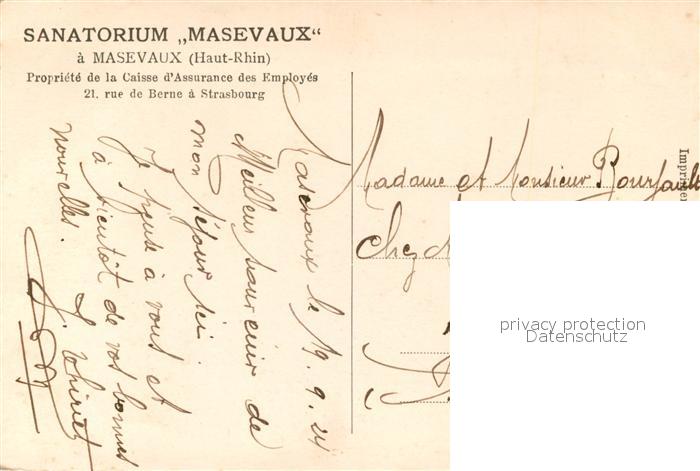 SANATORIUM „MASEVAUX“
à MASEVAUX (Haut-Rhin)
Propriété de la Caisse d'Assurance des Employés
21, rue de Berne à Strasbourg
Masevaux le 19. 9. 21
Meilleur souvenir de
mon séjour ici.
Je pense à vous et
à bientôt de vos bonnes
nouvelles.
Madame et Monsieur
Chez
privacy protection
Datenschutz